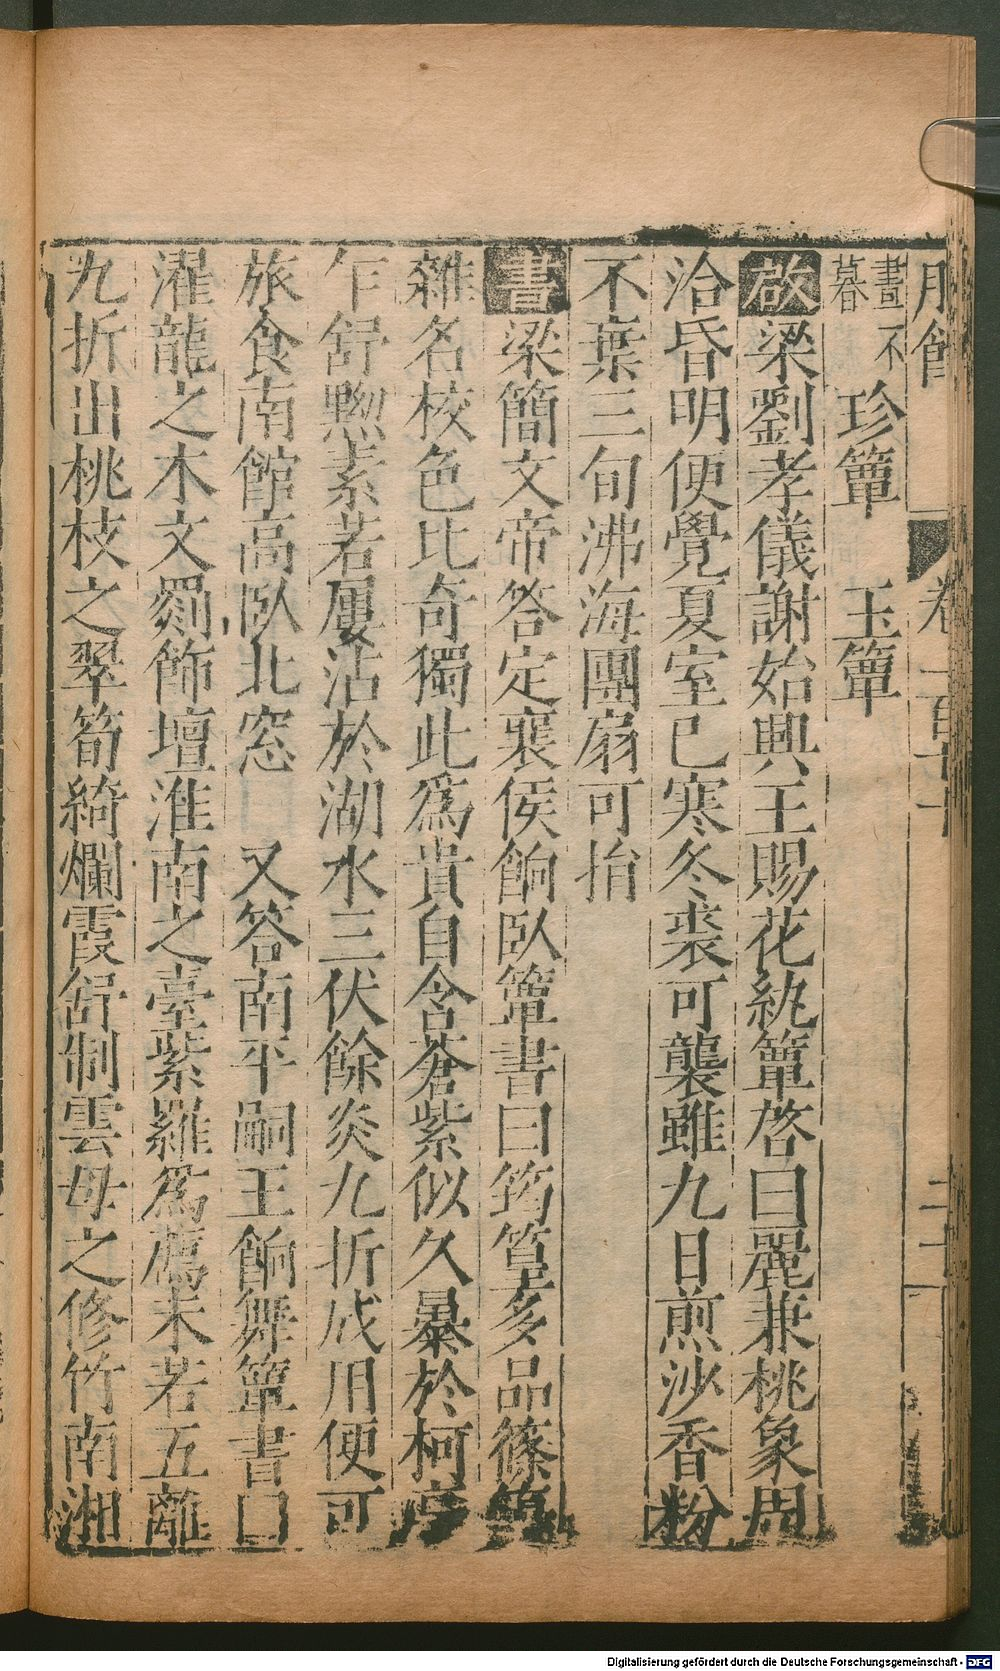 服飾 卷一百七十 二十一
晝不暮 珍簟 玉簟
啟梁劉孝儀謝始興王賜花紈簟啓曰麗兼桃象周
洽昏明便覺夏室已寒冬裘可襲雖九日煎沙香粉
不棄三旬沸海團扇可捐
書梁簡文帝答定襄侯餉臥簟書曰筠篁多品篠簜
雜名校色比奇獨此爲貴自含蒼紫似久暴於柯亭
乍舒黝素若屢沾於湖水三伏餘炎九折成用便可
旅食南館高臥北窓 又答南平嗣王餉舞簟書曰
濯龍之木文罽飾壇淮南之臺紫羅爲薦未若五離
九折出桃枝之翠筍綺爛霞舒制雲母之修竹南湘
Digitalisierung gefördert durch die Deutsche Forschungsgemeinschaft - DFG